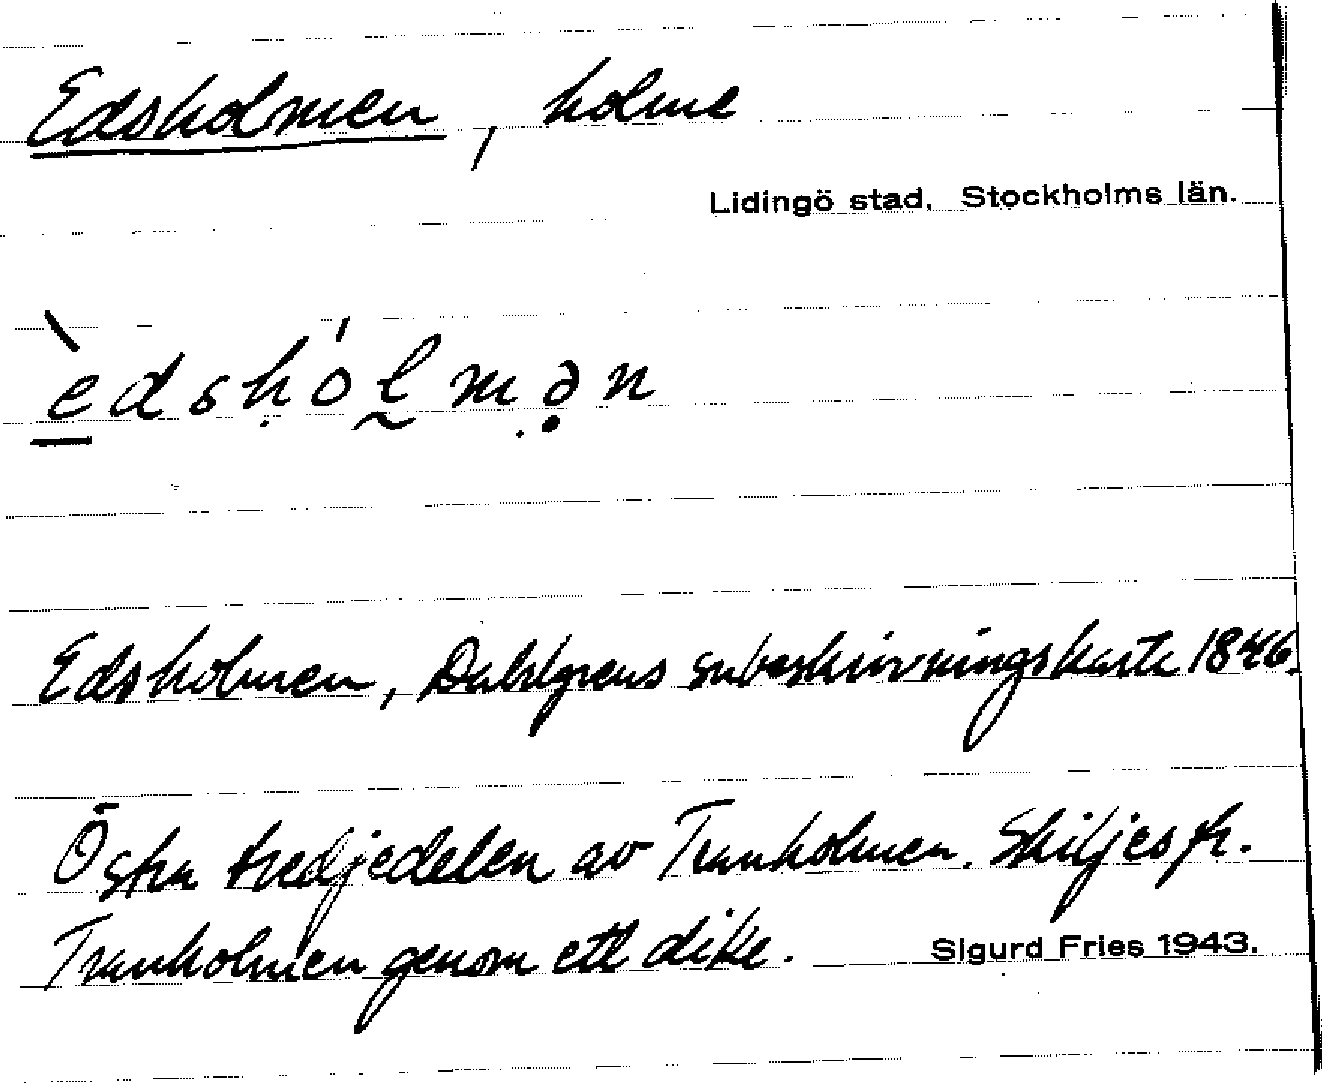 Edsholmen, holme
Lidingö stad, Stockholms län.
èdshólmən
Edsholmen, Dahlgrens sjöbeskrivningskarta 1846.
Östra tredjedelen av Tranholmen. Skiljes fr.
Tranholmen genom ett dike.
Sigurd Fries 1943.